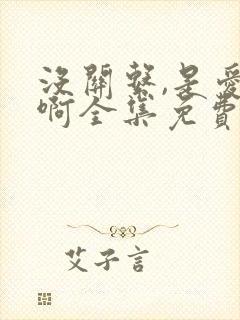 沒關繫,是愛
啊全集免費
艾子言